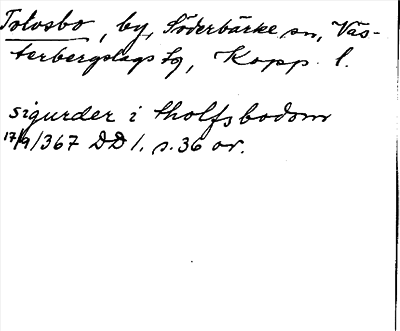 Tolvsbo, by, Söderbärke sn, Väs-
terbergslags tg, Kopp. l.
sigurder i tholfsbodom
17/9/1367 DD 1. s. 36 or.